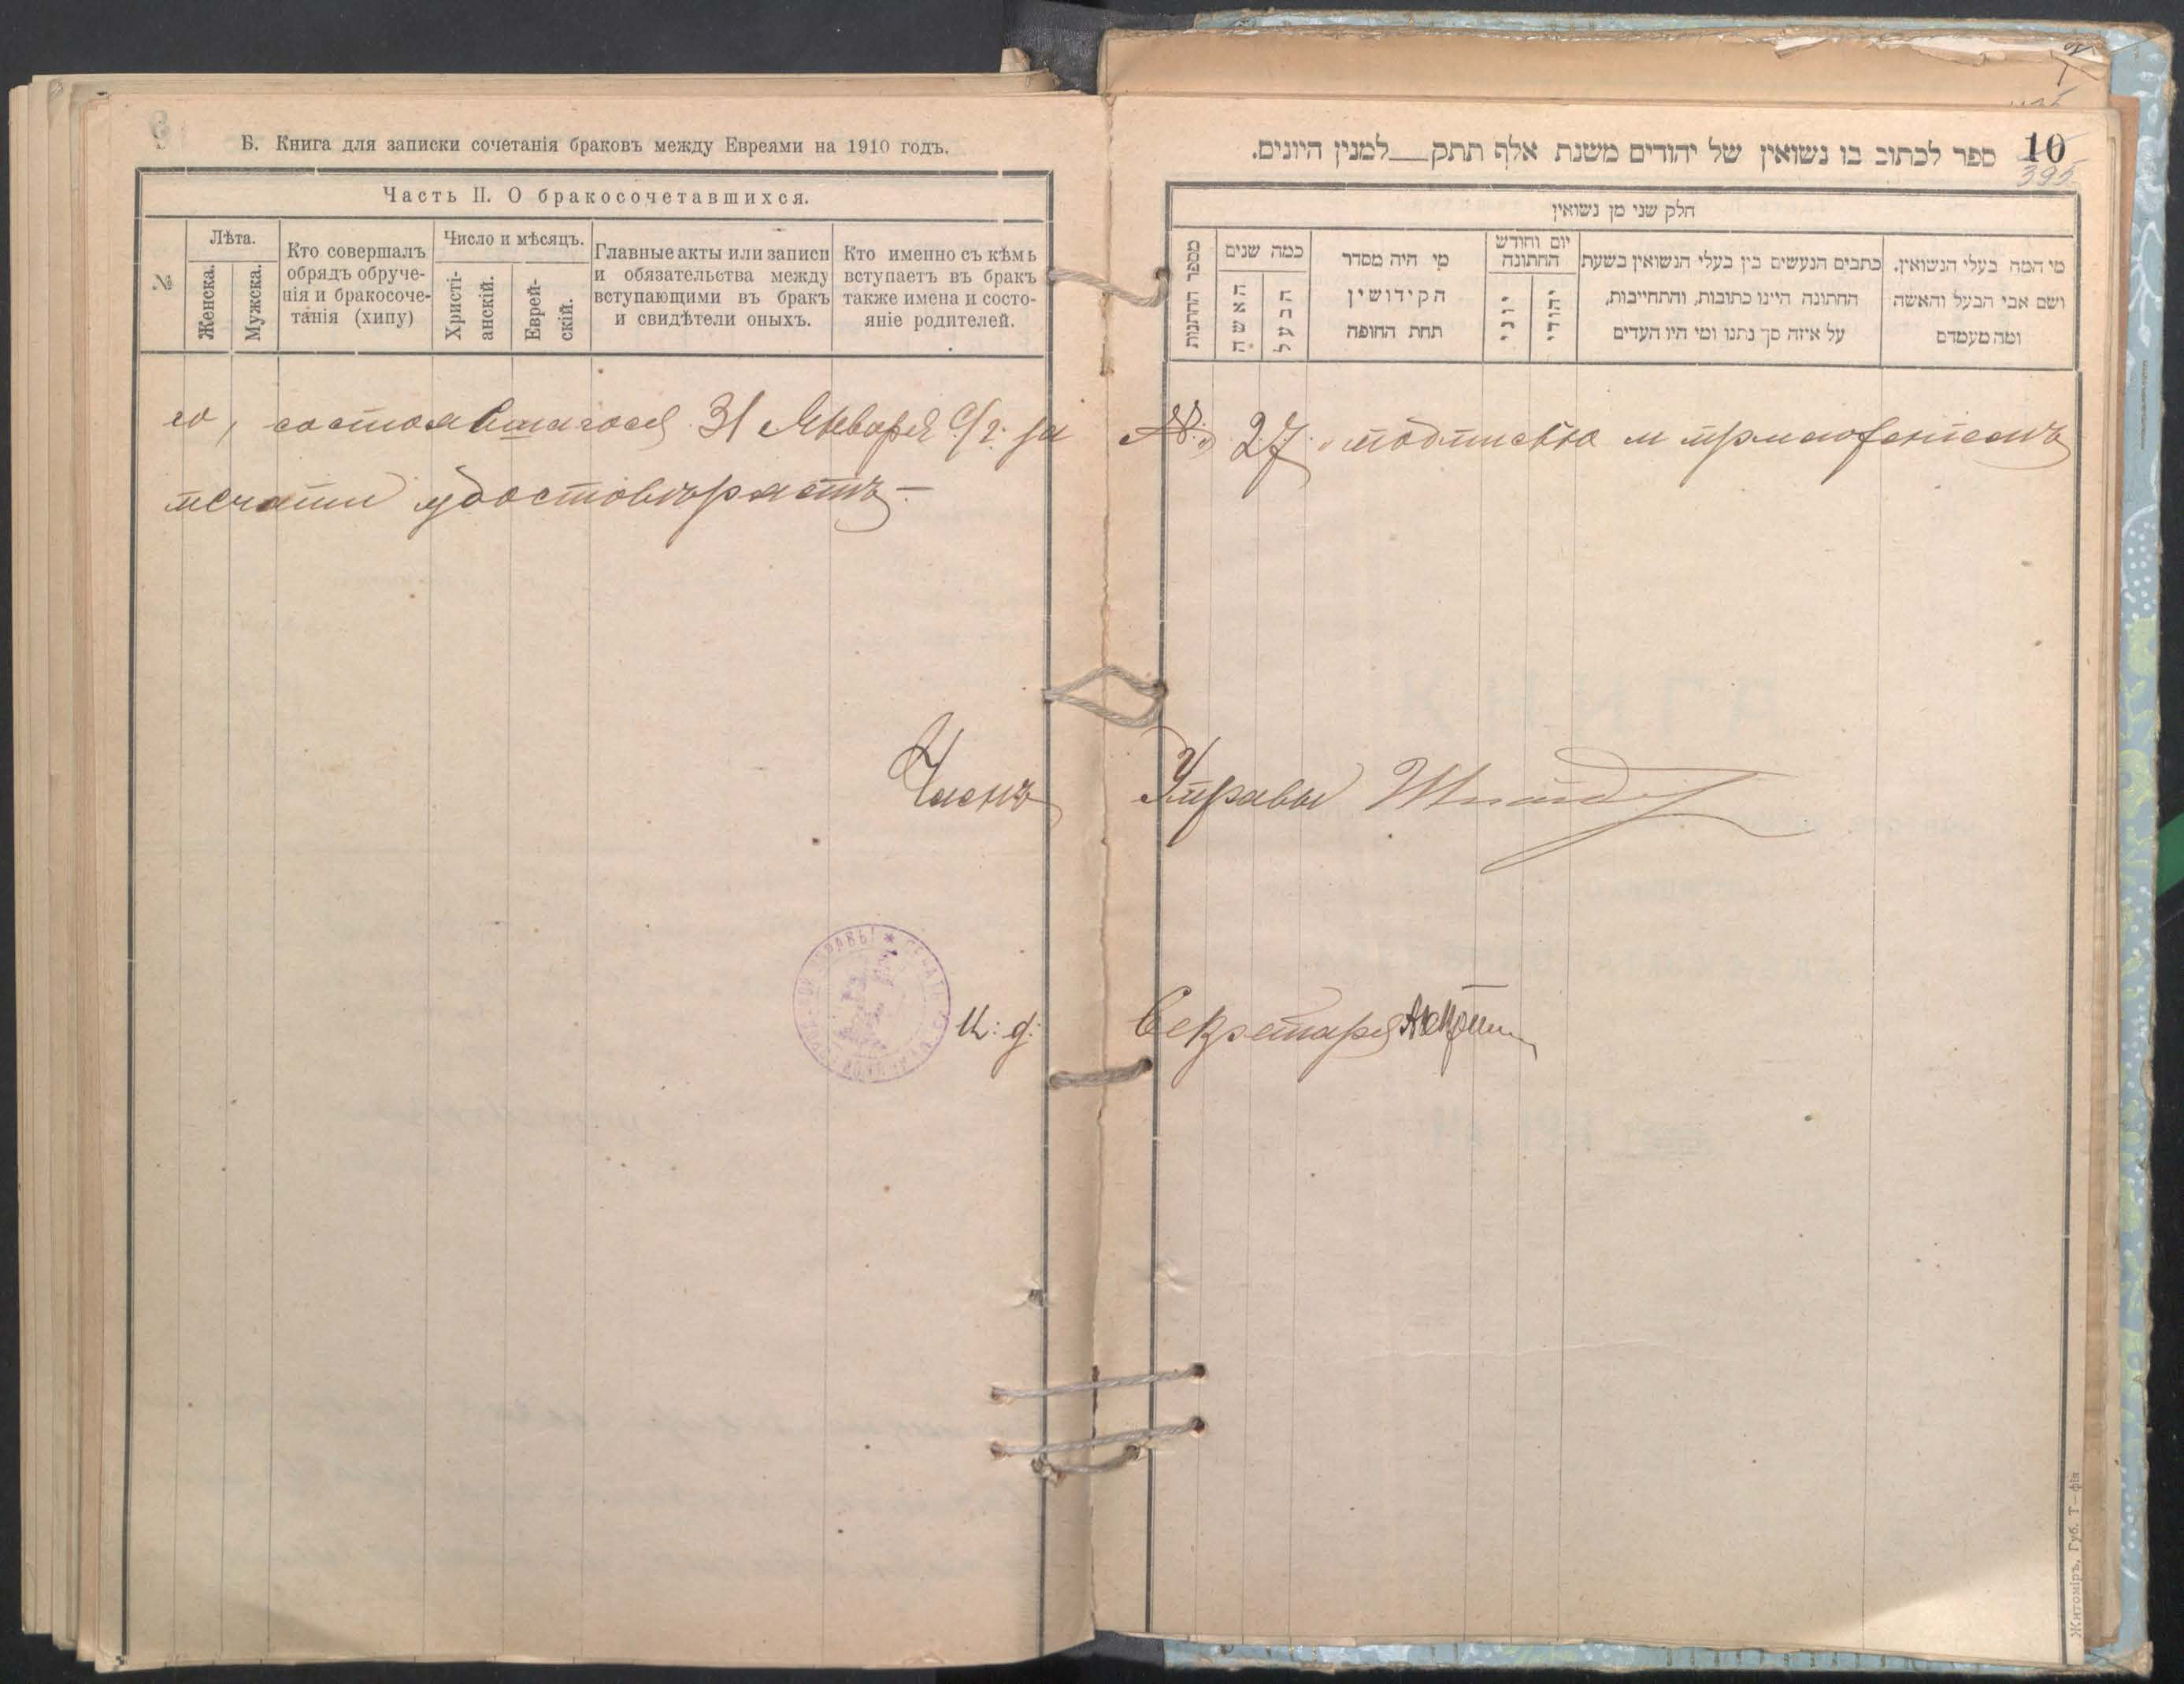 Б. Книга для записки сочетанія браковъ между Евреями на 1910 годъ.
Часть II. О бракосочетавшихся.
№
Лѣта.
Женска.
Мужска.
Кто совершалъ
обрядъ обруче-
нія и бракосоче-
танія (хипу)
Число и мѣсяцъ.
Христі-
анскій.
Еврей-
скій.
Главные акты или записи
и обязательства между
вступающими въ бракъ
и свидѣтели оныхъ.
Кто именно съ кѣмъ
вступаетъ въ бракъ
также имена и состо-
яніе родителей.
10
395
ספר לכתוב בו נשואין של יהודים משנת אלף תתק__למנין היונים.
חלק שני מן נשואין
מספר החתונות
כמה שנים
האשה
הבעל
מי היה מסדר
הקידושין
תחת החופה
יום וחודש
החתונה
יוני
יהודי
כתבים הנעשים בין בעלי הנשואין בשעת
החתונה היינו כתובות, והתחייבות,
על איזה סך נתנו ומי היו העדים
מי המה בעלי הנשואין.
ושם אבי הבעל והאשה
ומה מעמדם
го, состоявшагося 31 Января с/г. за № 27 подписью и приложеніемъ
печати удостовѣряетъ.—
Членъ Управы
И. д. Секретаря
Житоміръ, Губ. Т—фія